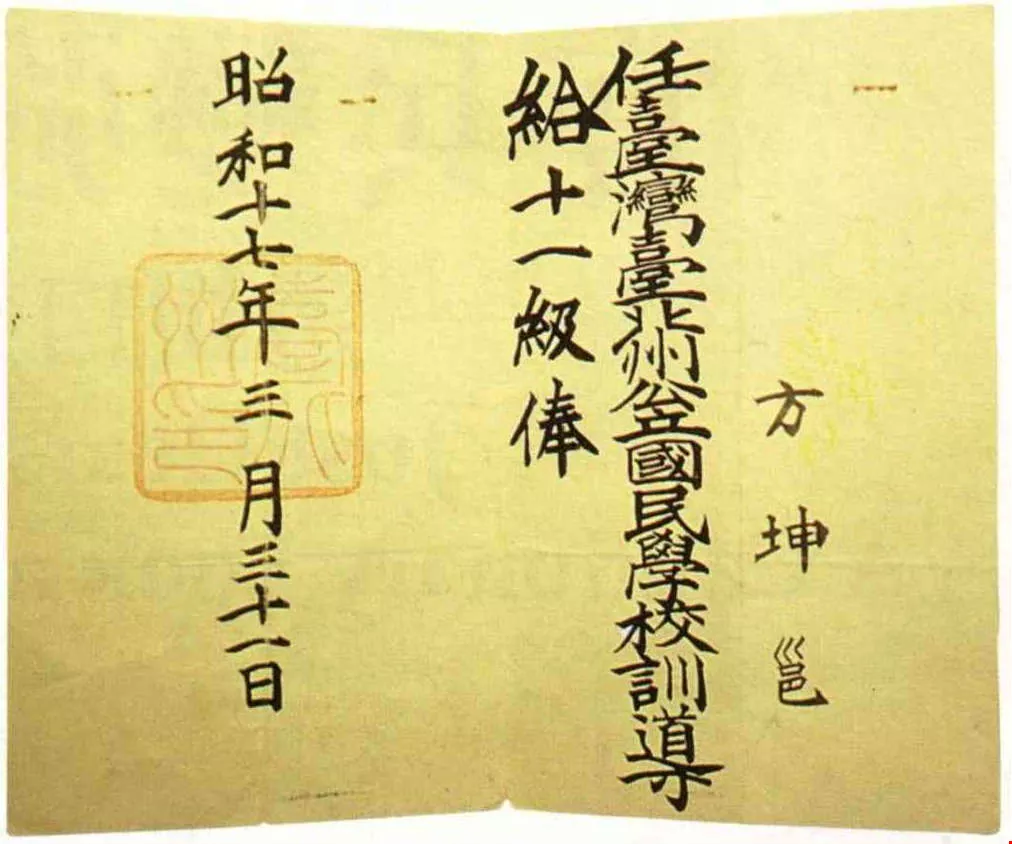 方坤邕
任臺灣臺北州公立國民學校訓導
給十一級俸
昭和十七年三月三十一日